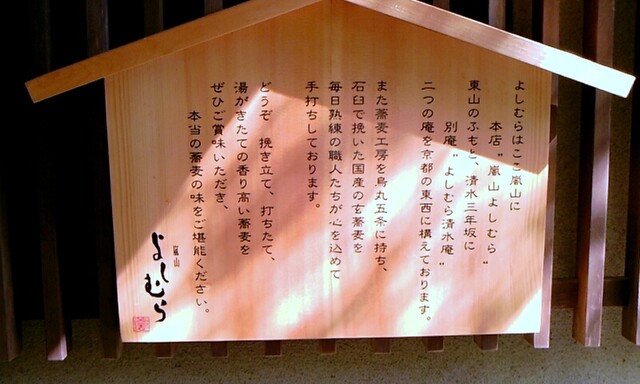 よしむらはここ嵐山に
本店〝嵐山 よしむら〟
東山のふもと、清水三年坂に
別庵〝よしむら清水庵〟
二つの庵を京都の東西に構えております。
また蕎麦工房を烏丸五条に持ち、
石臼で挽いた国産の玄蕎麦を
毎日熟練の職人たちが心を込めて
手打ちしております。
どうぞ 挽き立て、打ちたて、
湯がきたての香り高い蕎麦を
ぜひご賞味いただき、
本当の蕎麦の味をご堪能ください。
嵐山
よしむら